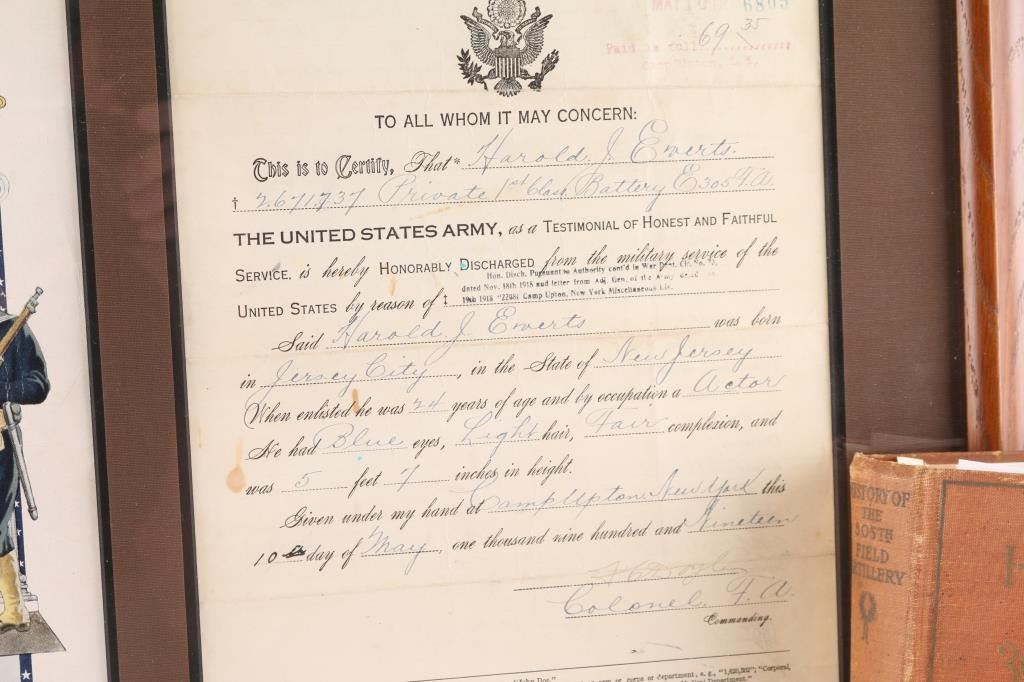 MAY 10 6805
Paid in full 69 35
TO ALL WHOM IT MAY CONCERN:
This is to Certify, That* Harold J. Ewerts.
† 2.671.737 Private 1st Class, Battery E 305 F.A.
THE UNITED STATES ARMY, as a TESTIMONIAL OF HONEST AND FAITHFUL
SERVICE, is hereby HONORABLY DISCHARGED from the military service of the
UNITED STATES by reason of ‡
Hon. Disch. Pursuant to Authority cont'd in War Dept. Cir. No.
dated Nov. 18th 1918 and letter from Adj. Gen. of the Army dated
19th 1918 "2208" Camp Upton, New York Miscellaneous
Said Harold J. Ewerts was born
in Jersey City, in the State of New Jersey
When enlisted he was 24 years of age and by occupation a Actor
He had Blue eyes, Light hair, Fair complexion, and
was 5 feet 7 inches in height.
Given under my hand at Camp Upton, New York this
10 day of May, one thousand nine hundred and Nineteen
Colonel. F. A.
Commanding.
"John Doe."
corps or department; e. g., "1,620,302"; "Corporal,
Department."
HISTORY OF
THE
305TH
FIELD
ARTILLERY
H
3